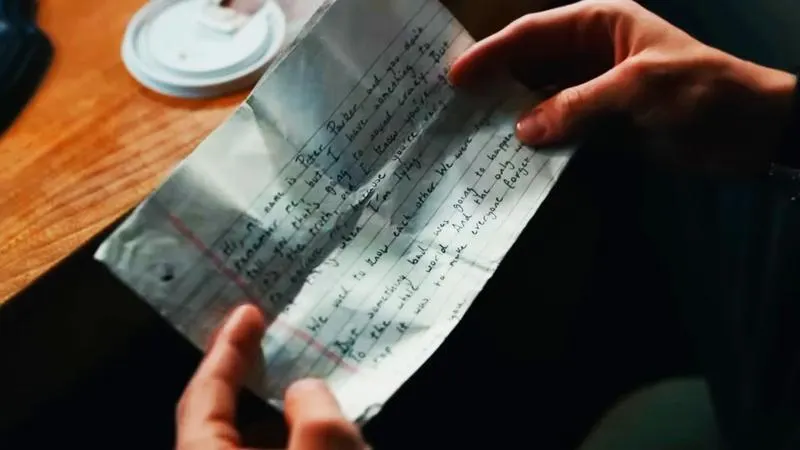 Hi, my name is Peter Parker and you don't
remember me, but I have something to
tell you that's going to sound crazy. But
it's the truth, and I know you're
because you're
when I'm lying
We used to know each other. We were
But something bad was going to happen
To the whole world. And the only
stop it was to make everyone forget
you